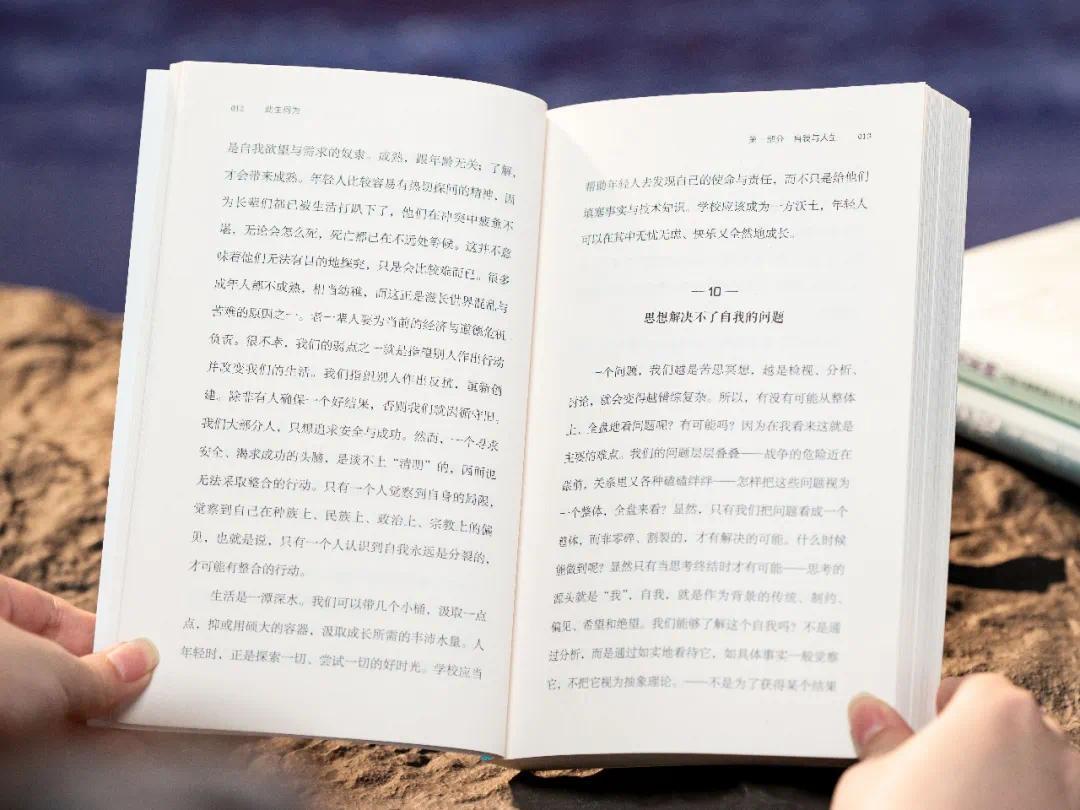 012 此生何为
是自我欲望与需求的奴隶。成熟，跟年龄无关；了解，
才会带来成熟。年轻人比较容易有热切探问的精神，因
为长辈们都已被生活打趴下了，他们在冲突中疲惫不
堪，无论会怎么死，死亡都已在不远处等候。这并不意
味着他们无法有目的地探究，只是会比较难而已。很多
成年人都不成熟，相当幼稚，而这正是滋长世界混乱与
苦难的原因之一。老一辈人要为当前的经济与道德危机
负责。很不幸，我们的弱点之一就是指望别人作出行动
并改变我们的生活。我们指望别人作出反抗，重新创
建。除非有人确保一个好结果，否则我们就因循守旧。
我们大部分人，只想追求安全与成功。然而，一个寻求
安全、渴求成功的头脑，是谈不上“清明”的，因而也
无法采取整合的行动。只有一个人觉察到自身的局限，
觉察到自己在种族上、民族上、政治上、宗教上的偏
见，也就是说，只有一个人认识到自我永远是分裂的，
才可能有整合的行动。
生活是一潭深水。我们可以带几个小桶，汲取一点
点，抑或用硕大的容器，汲取成长所需的丰沛水量。人
年轻时，正是探索一切、尝试一切的好时光。学校应当
第一部分 自我与人生 013
帮助年轻人去发现自己的使命与责任，而不只是给他们
填塞事实与技术知识。学校应该成为一方沃土，年轻人
可以在其中无忧无虑、快乐又全然地成长。
— 10 —
思想解决不了自我的问题
一个问题，我们越是苦思冥想，越是检视、分析、
讨论，就会变得越错综复杂。所以，有没有可能从整体
上、全盘地看问题呢？有可能吗？因为在我看来这就是
主要的难点。我们的问题层层叠叠——战争的危险近在
眼前，关系里又各种磕磕绊绊——怎样把这些问题视为
一个整体，全盘来看？显然，只有我们把问题看成一个
整体，而非零碎、割裂的，才有解决的可能。什么时候
能做到呢？显然只有当思考终结时才有可能——思考的
源头就是“我”，自我，就是作为背景的传统、制约、
偏见、希望和绝望。我们能够了解这个自我吗？不是通
过分析，而是通过如实地看待它，如具体事实一般觉察
它，不把它视为抽象理论。——不是为了获得某个结果